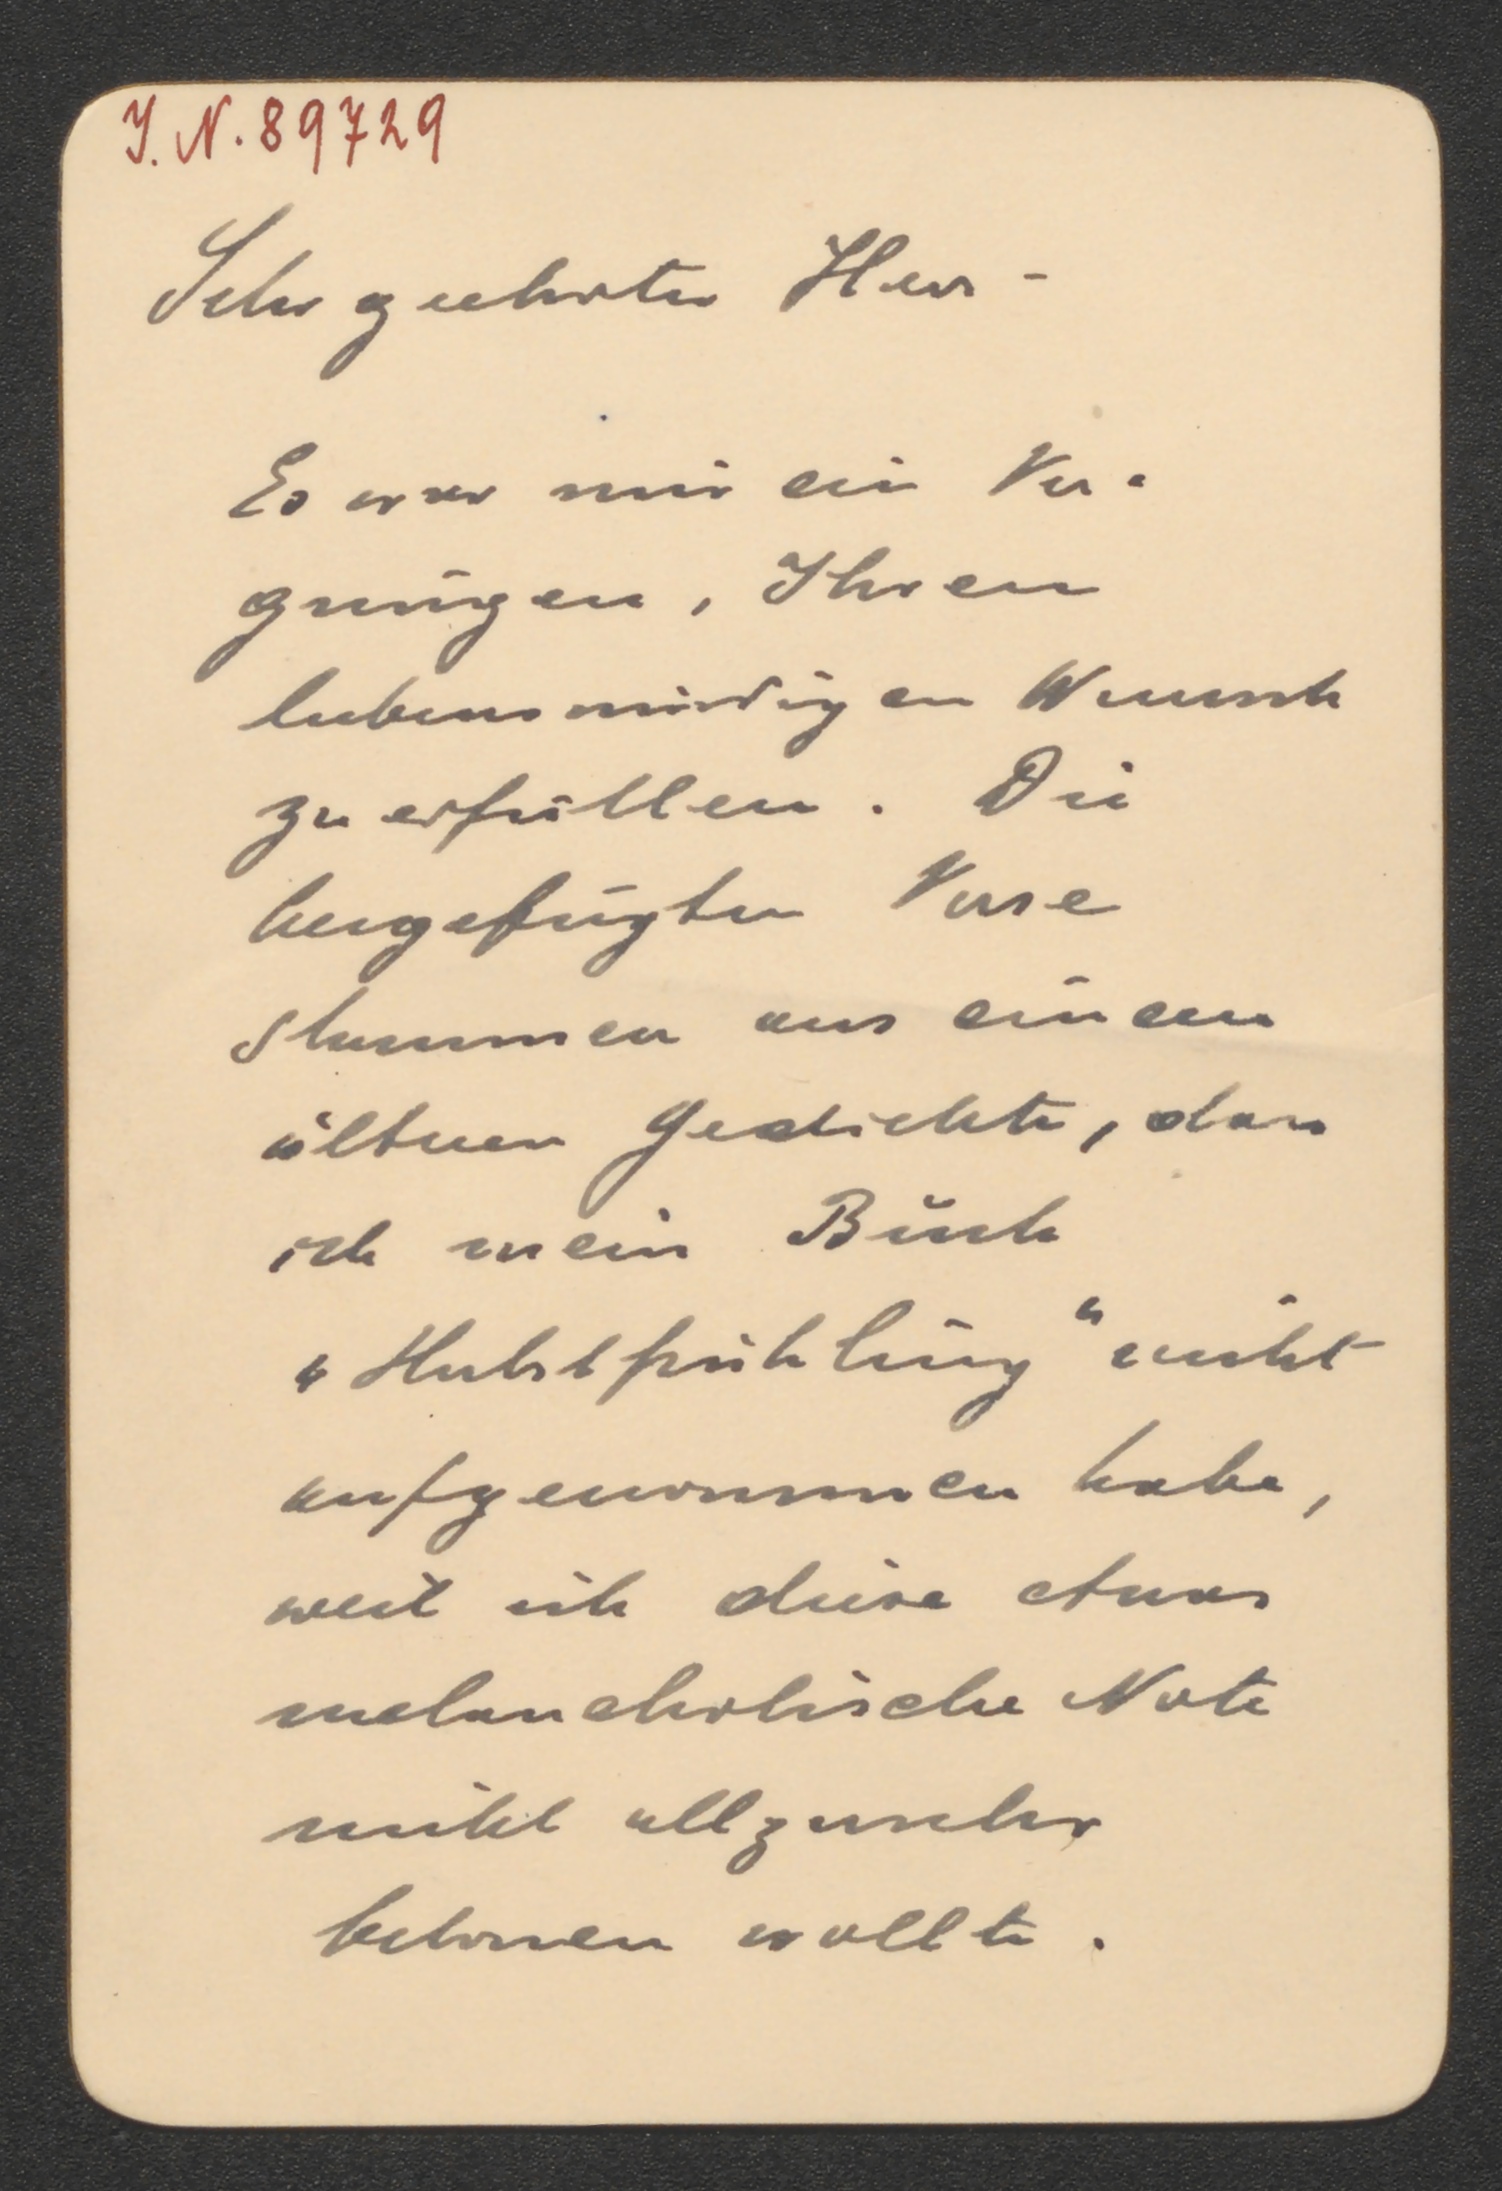 J. N. 89729
Sehr geehrter Herr -
Es war mir ein Ver-
gnügen, Ihren
liebenswürdigen Wunsch
zu erfüllen. Die
beigefügten Verse
stammen aus einem
älteren Gedichte, das
ich mein Buch
"Herbstfrühling" nicht
aufgenommen habe,
weil ich diese etwas
melancholische Note
nicht allzusehr
betonen wollte.